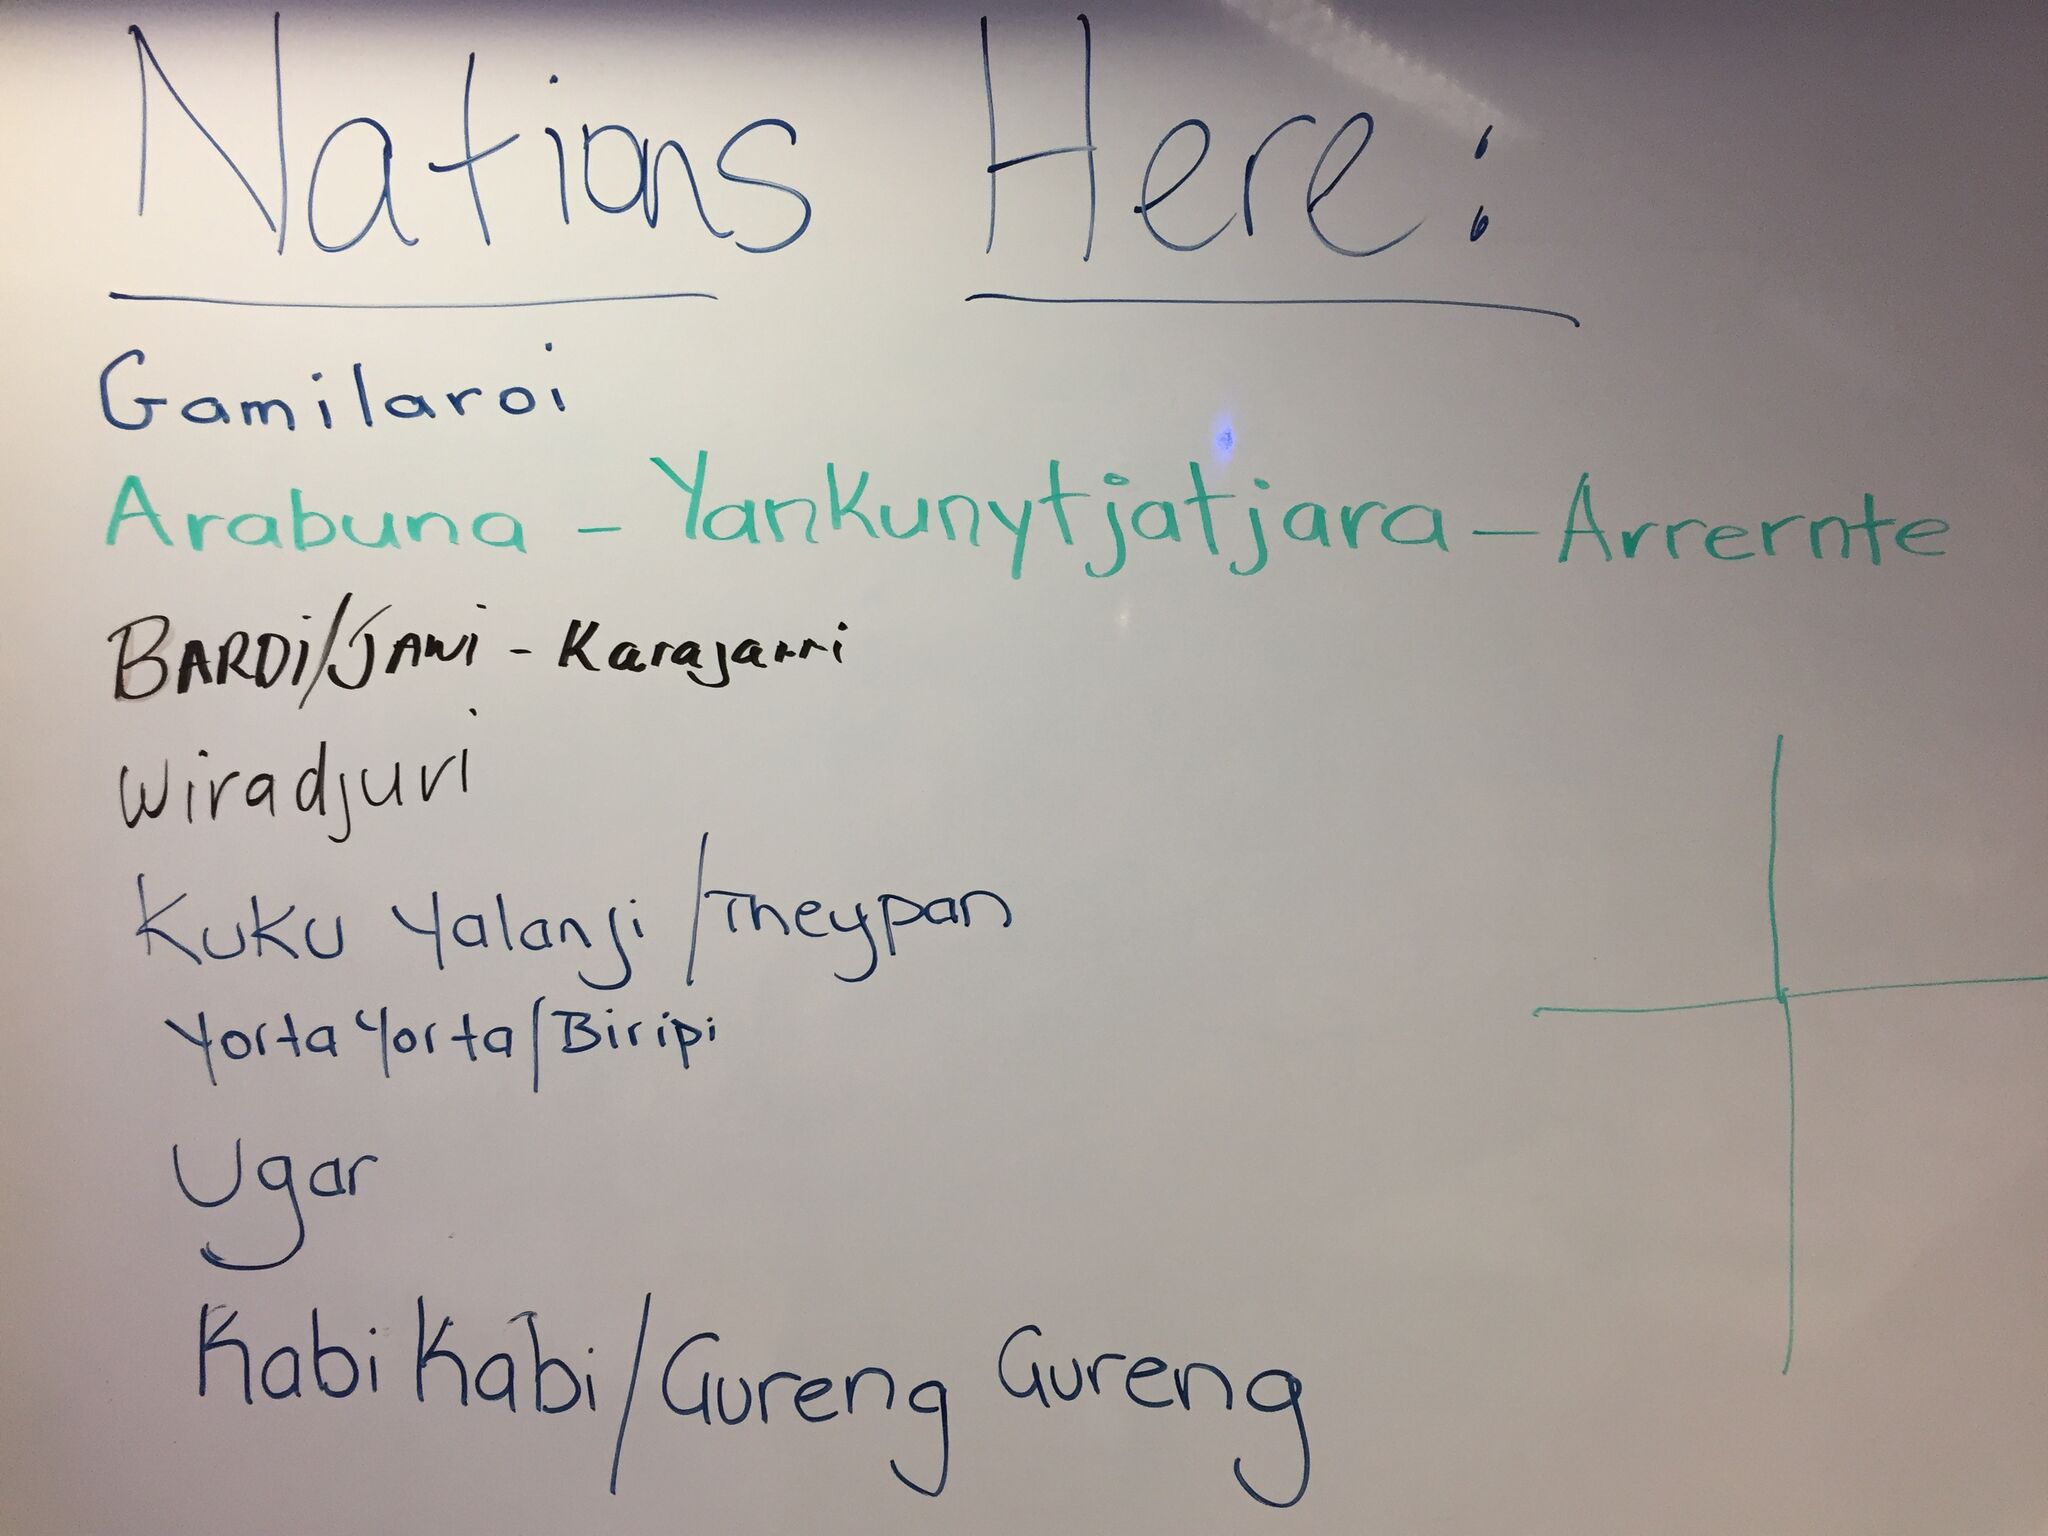 Nations Here:
Gamilaroi
Arabuna - Yankunytjatjara - Arrernte
BARDi/JAWi - Karajarri
Wiradjuri
Kuku Yalanji / Theypan
Yorta Yorta/Biripi
Ugar
Kabi Kabi/Gureng Gureng